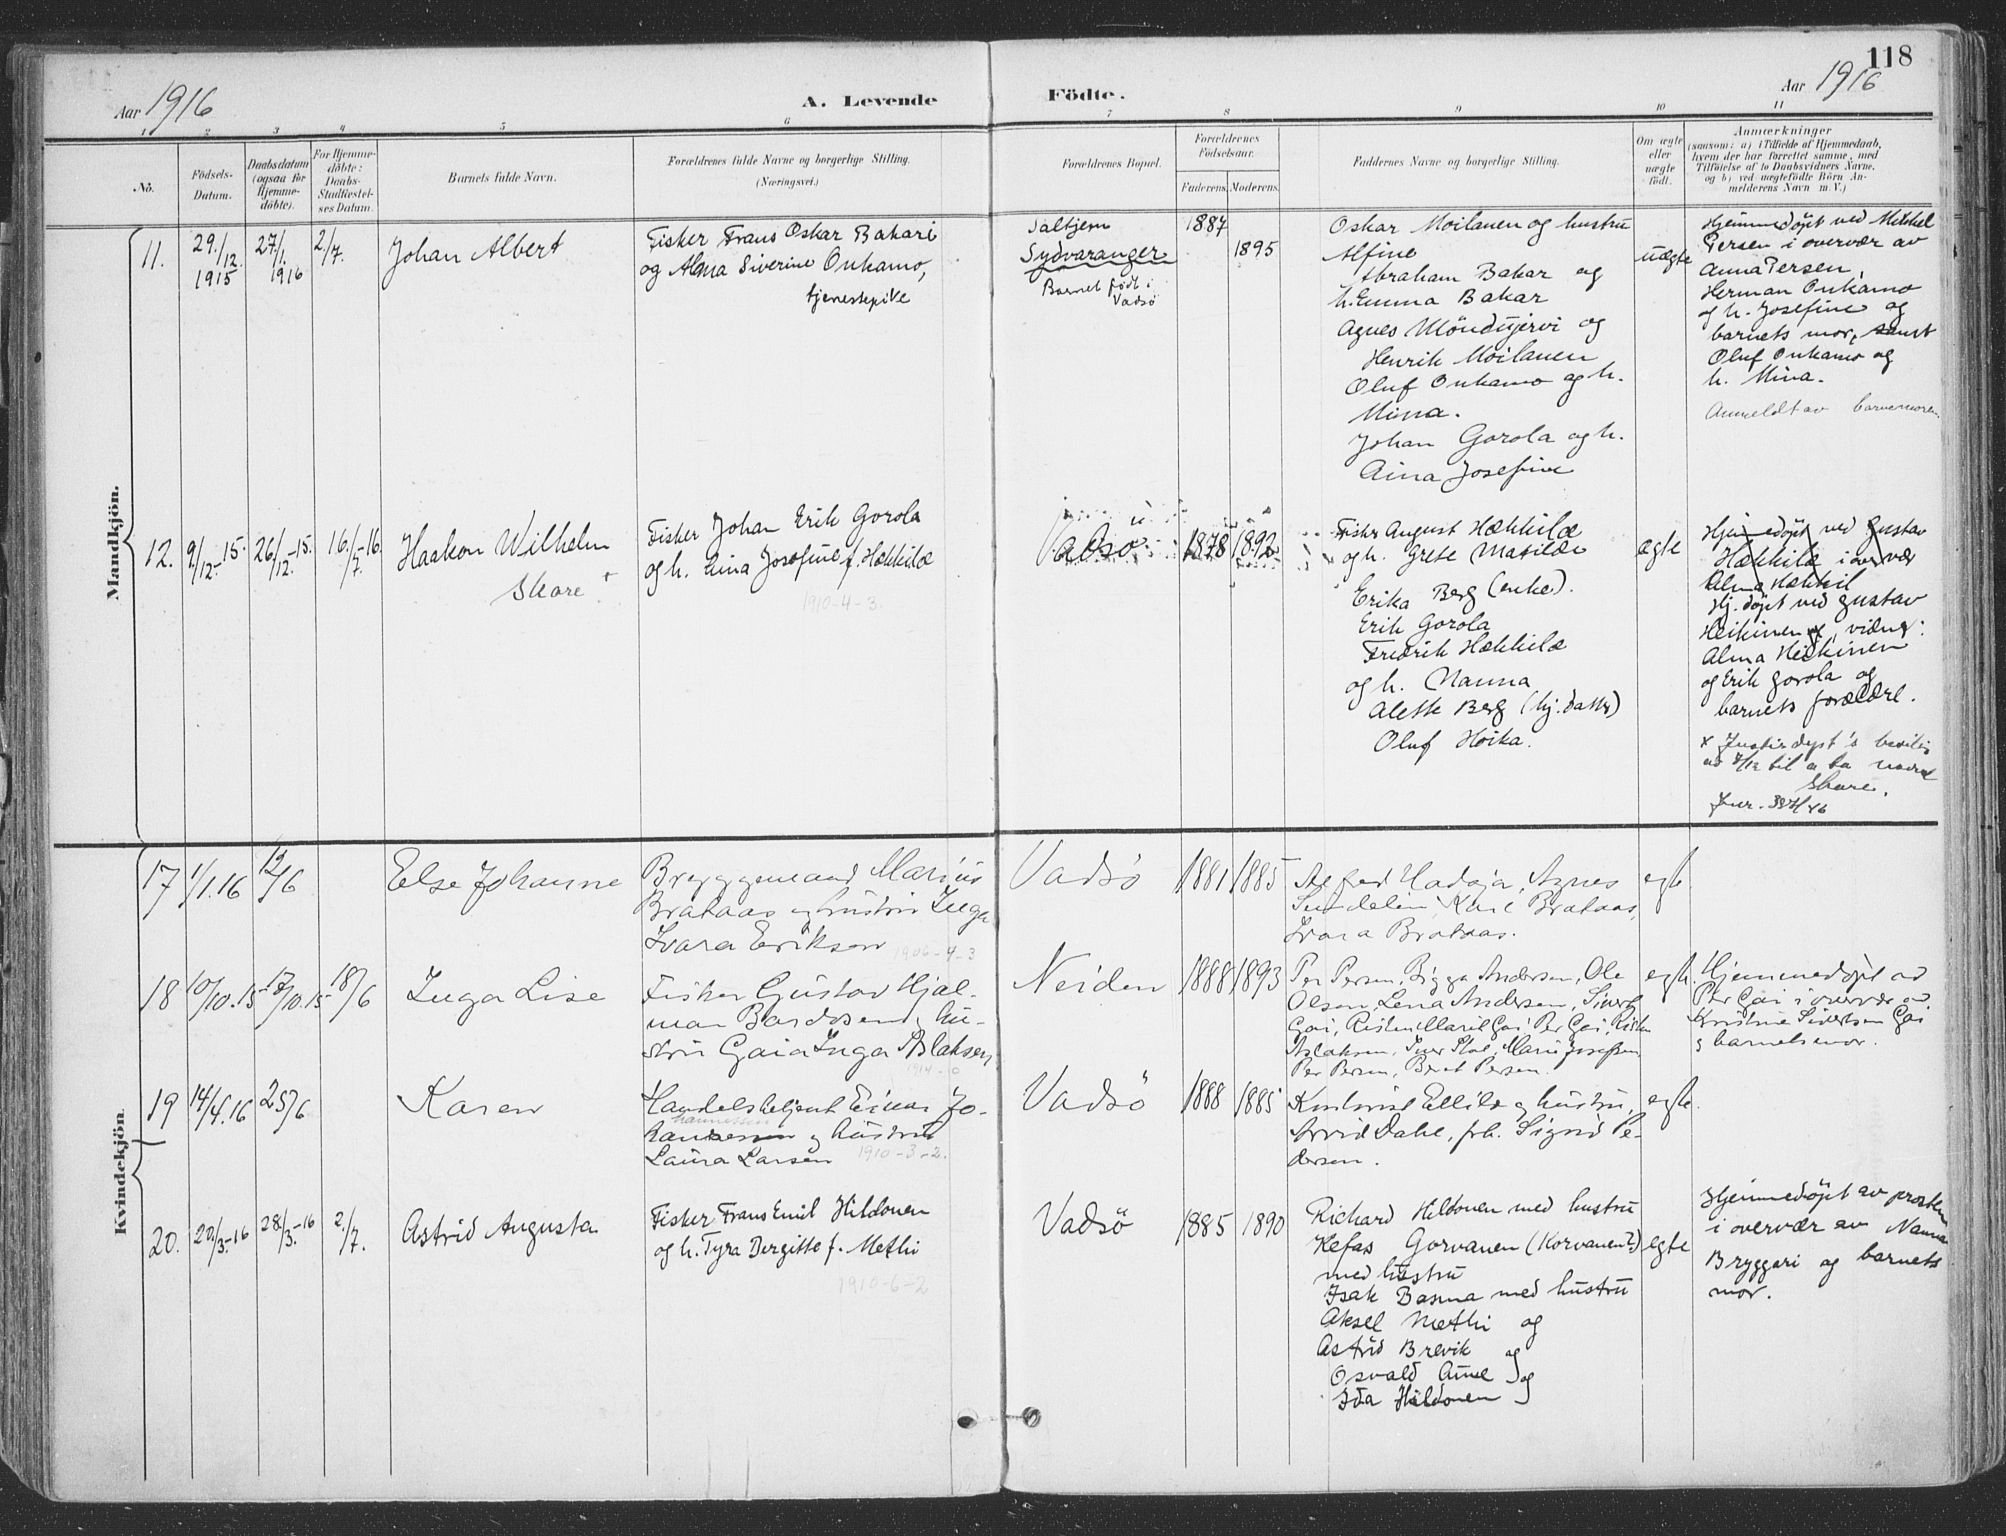 118
Aar 1916
A. Levende
Födte.
Aar 1916
1 2 3 4 5 6 7 8 9 10 11
No.
Födsels-
Datum.
Daabsdatum
(ogsaa for
Hjemme-
döbte).
For Hjemme-
döbte:
Daabs-
Stadfæstel-
ses Datum.
Barnets fulde Navn.
Forældrenes fulde Navne og borgerlige Stilling.
(Næringsvei.)
Forældrenes Bopæl.
Forældrenes
Födselsaar.
Faderens.
Moderens.
Faddernes Navne og borgerlige Stilling.
Om ægte
eller
uægte
födt.
Anmærkninger
(saasom: a) i Tilfælde af Hjemmedaab,
hvem der har forrettet samme, med
Tilföielse af to Daabsvidners Navne,
og b) ved uægtefödte Börn An-
melderens Navn m. V.)
Mandkjön.
11.
29./12.
1915
27/1.
1916
2/7.
Johan Albert
Fisker Frans Oskar Bakari
og Alma Siverine Onkamo,
tjenestepike
Jaltjem
Sydvaranger
Barnet født i
Vadsö
1887
1895
Oskar Moilanen og hustru
Alfine
Abraham Bakar og
h. Emma Bakar
Agnes Möndujervi og
Henrik Moilanen
Oluf Onkamo og h.
Minna.
Johan Gorola og h.
Aina Josefine
uægte
Hjemmedøpt ved Mikkel
Persen i overvær av
Anna Persen,
Herman Onkamo
og h. Josefine og
barnets mor, samt
Oluf Onkamo og
h. Mina.
Anmeldt av barnemoren.
12.
9/12.-15.
26/12.-15.
16./7.-16.
Haakon Wilhelm
Skare +
Fisker Johan Erik Gorola
og h. Aina Josefine f. Hækkilæ
1910-4-3.
Vadsø
1878
1892
Fisker August Hækkilæ
og h. Grete Matilde
Erika Berg (enke).
Erik Gorola
Fredrik Hækkilæ
og h. Nanna
Alette Berg (hj. datter)
Oluf Hoika.
ægte
Hjemmedøpt ved Gustav
Hækkilæ i overvær
Alma Hækkil
Hj. døpt ved Gustav
Heikinen, vidner:
Alma Heikinen
og Erik Gorola og
barnets forældre.
x Justisdept's bevilg
av 7/12 til a ta navnet
Skare.
Jnr. 397/46
Kvindekjön.
17
1/1.16
12/6
Else Johanne
Bryggemand Marius
Brataas og hustru Inga
Ivara Eriksen 1906-4-3
Vadsö
1881
1885
Alfred Hadoja, Agnes
Sundelin, Karl Brataas,
Ivara Brataas.
egte
18
10/10.15
17/10.15
18/6
Inga Lise
Fisker Gustav Hjal-
mar Bardosen, hu-
stru Gaia Inga Aslaksen
1914-10
Neiden
1888
1893
Per Persen, Bigga Andersen, Ole
Olsen, Lena Andersen, Sivert
Gai, Risten Marit Gai, Per Gai, Risten
Aslaksen, Iver Stol, Marit Josefsen
Per Persen, Berit Persen.
egte.
Hjemmedøpt av
Per Gai i overvær av
Kristine Sivertsen Gai
og barnets mor.
19
14/4.16
25/6
Karen
Handelsbetjent Einar Jo-
hannessen
hannessen og hustru
Laura Larsen 1910-3-2.
Vadsö
1888
1885
Konstanse Ellilæ og hustru,
Arvid Dahl, frk. Sigrid Pe-
dersen.
egte.
20.
20/3.-16
28/3.-16
2./7.
Astrid Augusta
Fisker Frans Emil Hildonen
og h. Tyra Bergitte f. Methi
1910-6-2
Vadsö
1885
1890
Richard Hildonen med hustru
Kefas Gorvanen (Korvanen?)
med hustru
Isak Basma med hustru
Aksel Methi og
Astrid Brevik og
Osvald Aune og
Ida Hildonen
egte
Hjemmedøpt av prosten
i overvær av Nanna
Bryggari og barnets
mor.